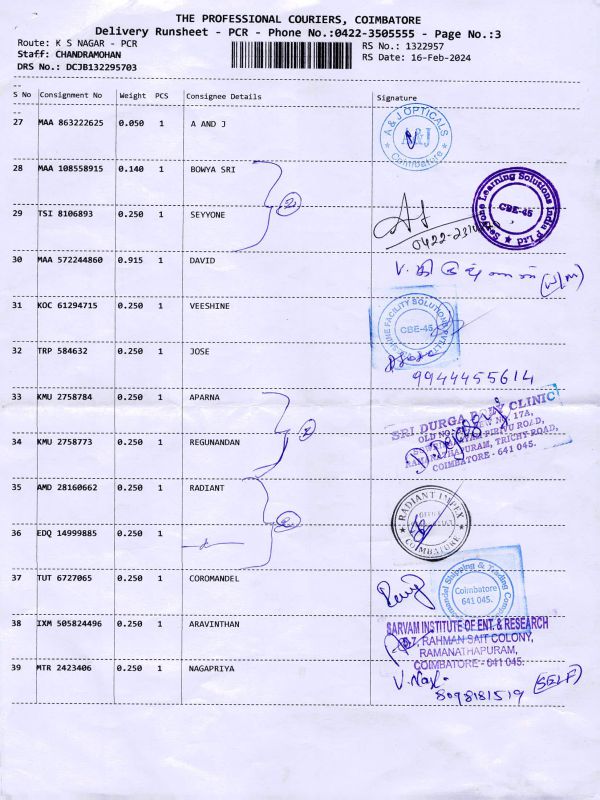 THE PROFESSIONAL COURIERS, COIMBATORE
Delivery Runsheet - PCR - Phone No.:0422-3505555 - Page No.:3
Route: K S NAGAR - PCR
RS No.: 1322957
Staff: CHANDRAMOHAN
RS Date: 16-Feb-2024
DRS No.: DCJB132295703
S No Consignment No Weight PCS Consignee Details Signature
27 MAA 863222625 0.050 1 A AND J
A & J OPTICALS
A&J
Coimbatore
28 MAA 108558915 0.140 1 BOWYA SRI
2
CBE-45
29 TSI 8106893 0.250 1 SEYYONE
30 MAA 572244860 0.915 1 DAVID
31 KOC 61294715 0.250 1 VEESHINE
CBE-45
32 TRP 584632 0.250 1 JOSE
9944455614
33 KMU 2758784 0.250 1 APARNA
SRI DURGA POLY CLINIC
34 KMU 2758773 0.250 1 REGUNANDAN
RAMANATHAPURAM, TRICHY ROAD,
COIMBATORE - 641 045.
35 AMD 28160662 0.250 1 RADIANT
2
RADIANT IMPEX
COIMBATORE
36 EDQ 14999885 0.250 1
37 TUT 6727065 0.250 1 COROMANDEL
Coimbatore
641 045.
38 IXM 505824496 0.250 1 ARAVINTHAN
SARVAM INSTITUTE OF ENT. & RESEARCH
RAHMAN SAIT COLONY,
RAMANATHAPURAM,
COIMBATORE - 641 045.
39 MTR 2423406 0.250 1 NAGAPRIYA
8098181519 (SELF)